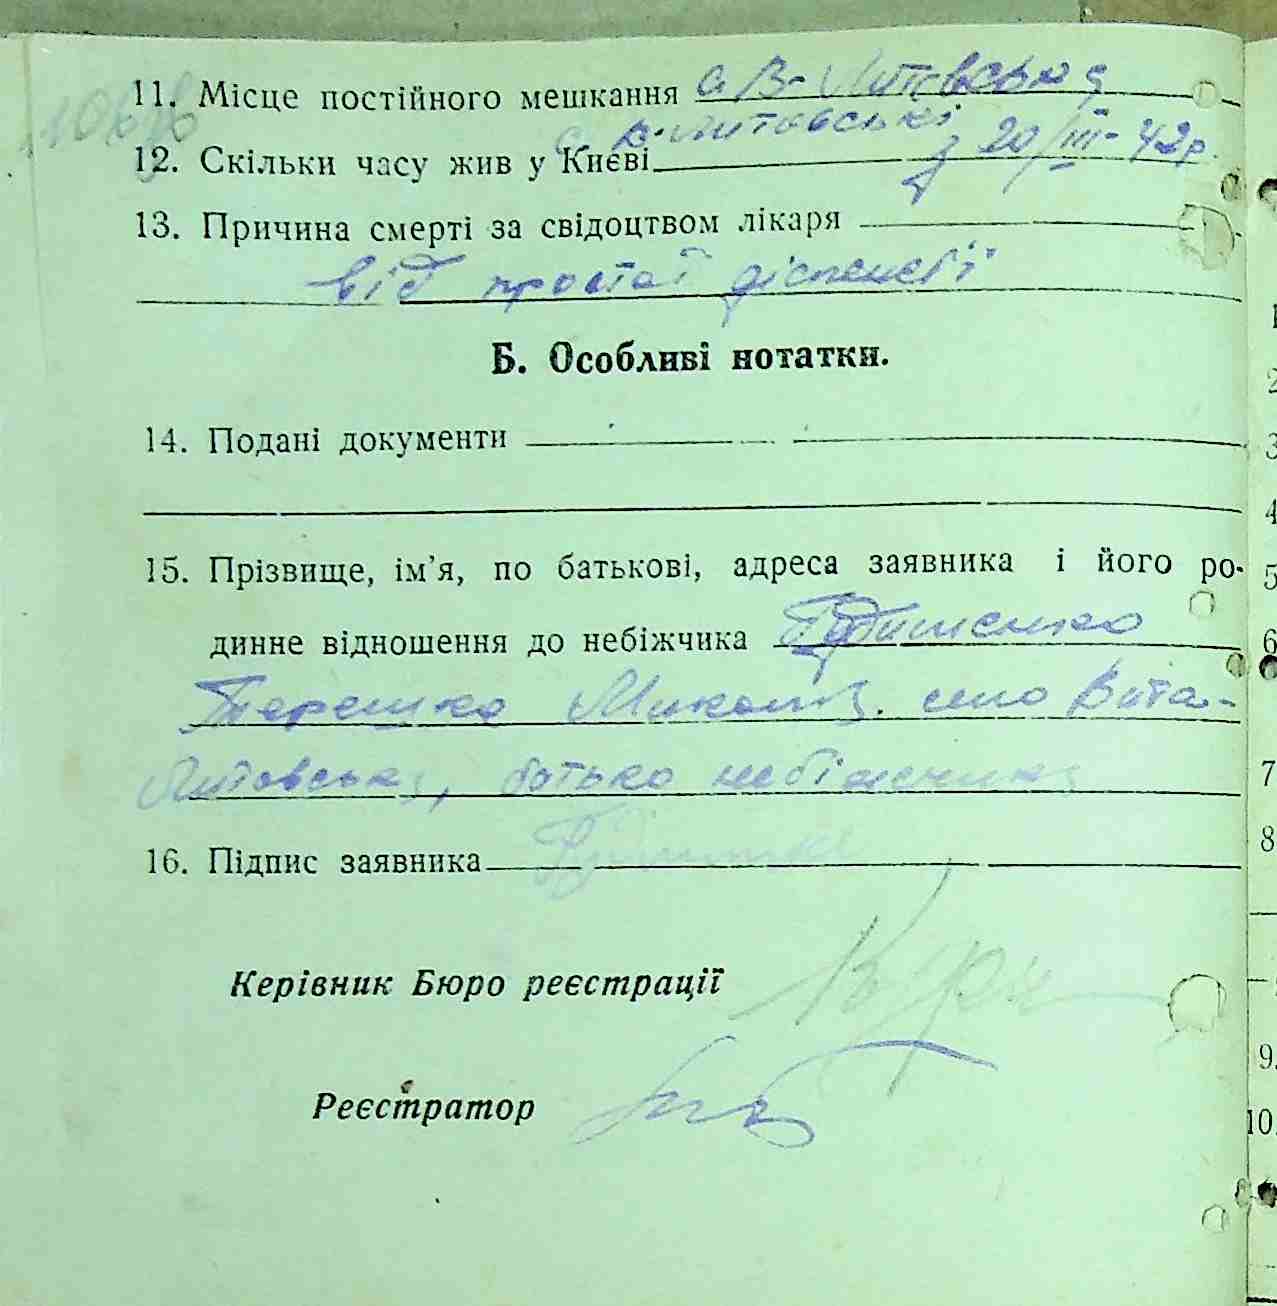 11. Місце постійного мешкання с. В-Литовська
В-Литовські
12. Скільки часу жив у Києві з 20/III-42р.
13. Причина смерті за свідоцтвом лікаря
від простої діспепсії
Б. Особливі нотатки.
14. Подані документи
15. Прізвище, ім'я, по батькові, адреса заявника і його ро-
динне відношення до небіжчика
Терешко Микол. село Вита-
Литовська, батько небіжчика
16. Підпис заявника
Керівник Бюро реєстрації
Реєстратор
1
2
3
4
5
6
7
8
9.
10.